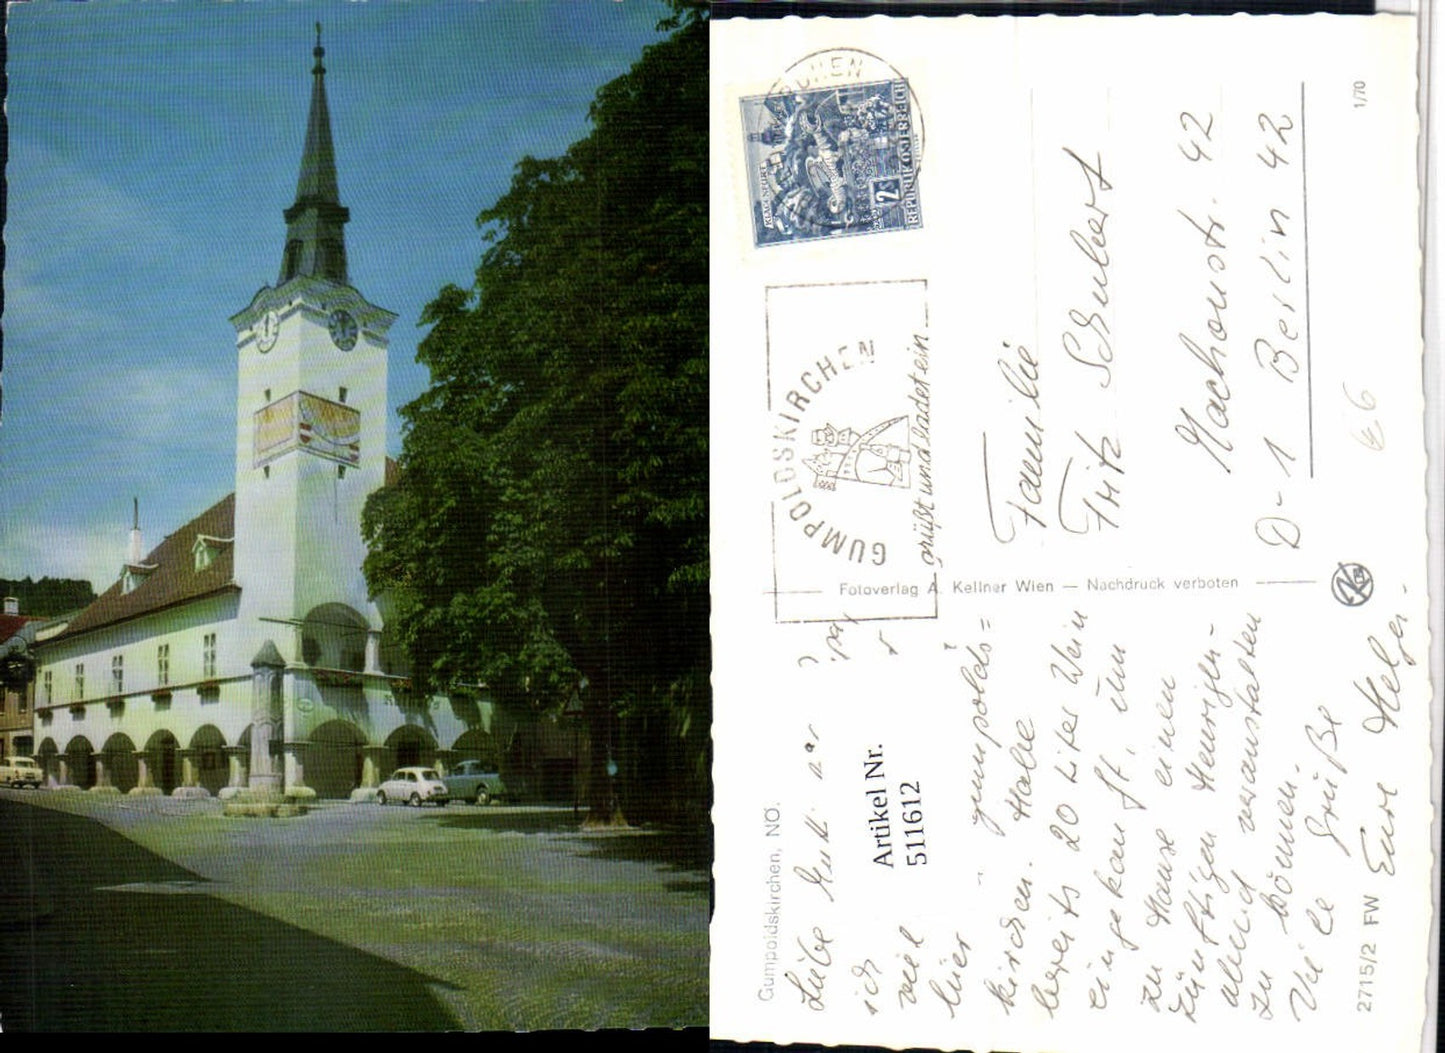 KLAGENFURT
2 s
REPUBLIK ÖSTERREICH
GUMPOLDSKIRCHEN
grüßt und ladet ein
Familie
Fritz Schubert
Machonstr. 42
D-1 Berlin 42
1/70
66
Fotoverlag A. Kellner Wien — Nachdruck verboten
Gumpoldskirchen, NÖ.
Liebe Mutti
ich
Artikel Nr.
511612
viel
hier gumpolds=
kirchen. Habe
bereits 20 Liter Wein
eingekauft, um
zu Hause einen
zünftigen Heurigen-
abend veranstalten
zu können.
Viele Grüße
Eure Helga.
2715/2 FW